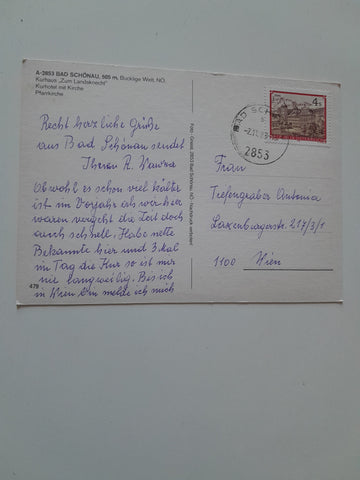 A-2853 BAD SCHÖNAU, 505 m, Bucklige Welt, NÖ.
Kurhaus „Zum Landsknecht"
Kurhotel mit Kirche
Pfarrkirche
Recht herzliche Grüße
aus Bad Schönau sendet
R.
Obwohl es schon viel kälter
ist im Vorjahr als wir hier
waren vergeht die Zeit doch
auch schnell. Habe nette
Bekannte hier und 3.kal
im Tag die Kur so ist mir
nie langweilig. Bis ich
in Wien bin melde ich mich
479
Foto: 2853 Bad Schönau, NÖ Nachdruck verboten!
4 S
BAD SCH
2853
Frau
Tiefengraber Antonia
Laxenburgerstr. 217/3/1
1100 Wien